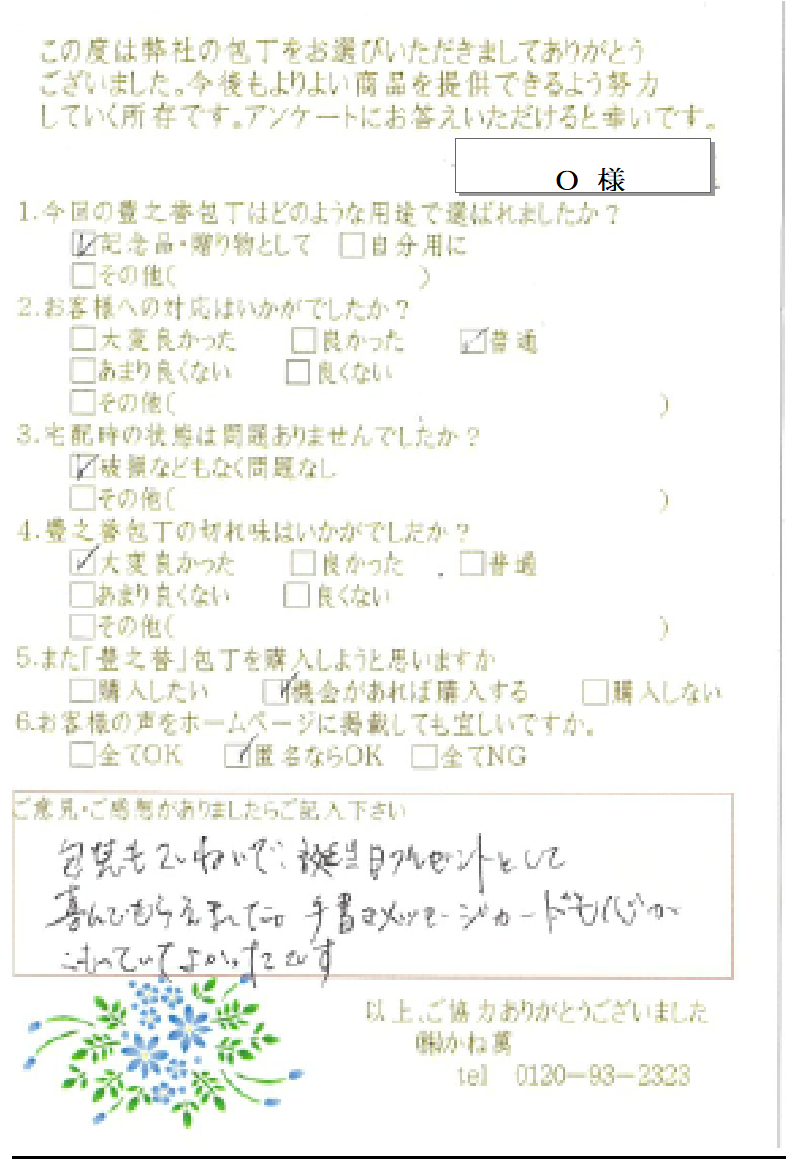 この度は弊社の包丁をお選びいただきましてありがとう
ございました。今後もよりよい商品を提供できるよう努力
していく所存です。アンケートにお答えいただけると幸いです。
O 様
1.今回の豊之誉包丁はどのような用途で選ばれましたか?
☑記念品・贈り物として □自分用に
□その他( )
2.お客様への対応はいかがでしたか?
□大変良かった □良かった ☑普通
□あまり良くない □良くない
□その他( )
3.宅配時の状態は問題ありませんでしたか?
☑破損などもなく問題なし
□その他( )
4.豊之誉包丁の切れ味はいかがでしたか?
☑大変良かった □良かった □普通
□あまり良くない □良くない
□その他( )
5.また「豊之誉」包丁を購入しようと思いますか
□購入したい ☑機会があれば購入する □購入しない
6.お客様の声をホームページに掲載しても宜しいですか。
□全てOK ☑匿名ならOK □全てNG
ご意見・ご感想がありましたらご記入下さい
包装もていねいで、誕生日プレゼントとして
喜んでもらえました。手書きメッセージカードも心が
こもっていてよかったです
以上、ご協力ありがとうございました
㈱かね萬
tel 0120-93-2323